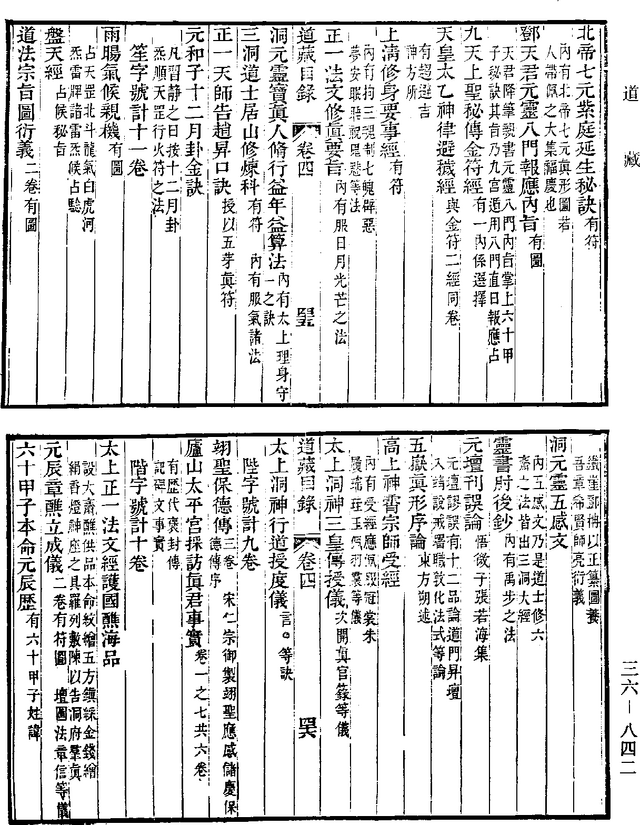 道藏
北帝七元紫庭延生秘訣有符
內有北帝七元真形圖若
人帶佩之大集福慶也
鄧天君元靈八門報應內旨有圖
天君降筆親書元靈八門內旨掌上六十甲
子秘訣其旨乃九宮遁用八門直日報應占
九天上聖秘傳金符經有一內係選擇
天皇太乙神律避穢經與金符二經同卷
有超避言
禪方所
上清修身要事經有符
內有拘三魂制七魄辟惡
夢安眠聽視悲等法
正一法文修真要旨內有服日月光芒之法
道藏目錄 卷四
洞元靈寶真人脩行益年益算法內有太上理身守
一之訣
三洞道士居山修煉科有符 內有服氣諸法
正一天師告趙昇口訣授以五芽真符
元和子十二月卦金訣
凡習靜之日按十二月卦
炁順天罡行火符之法
笙字號計十一卷
雨暘氣候親機有圖
占天罡北斗龍氣白虎河
炁雷蹕諸雷炁候占驗
盤天經占候秘旨
道法宗旨圖衍義二卷有圖
吾章希賢師亮衍義
洞元靈五感文
內五感文乃是道士修六
齋之法皆出三洞大經
靈書肘後鈔內有禹步之法
元壇刊誤論悟微子張若海集
元道謬誤有十二品論道門昇壇
入靖設戒署職敎化法式等論
五嶽真形序論東方朔述
高上神霄宗師受經
內有受經應佩服冠裳朱
履瑞莊玉佩羽裳等儀
太上洞神三皇傳授儀次開真官籙等儀
道藏目錄 卷四
太上洞神行道授度儀言。等訣
陛字號計九卷
翊聖保德傳三卷 宋仁宗御製翊聖應感儲慶保
德傳序
廬山太平宮採訪真君事實卷一之七共六卷
有歷代褒封傳
記碑文事實
階字號計十卷
太上正一法文經護國醮海品
設大齋醮供品本命紋繒五方鎮綵金錢繒
絹香燈神座之具羅列數陳以告洞府羣真
元辰章醮立成儀二卷有符圖 壇圖法章信等儀
六十甲子本命元辰歷有六十甲子姓諱
三六—八四二